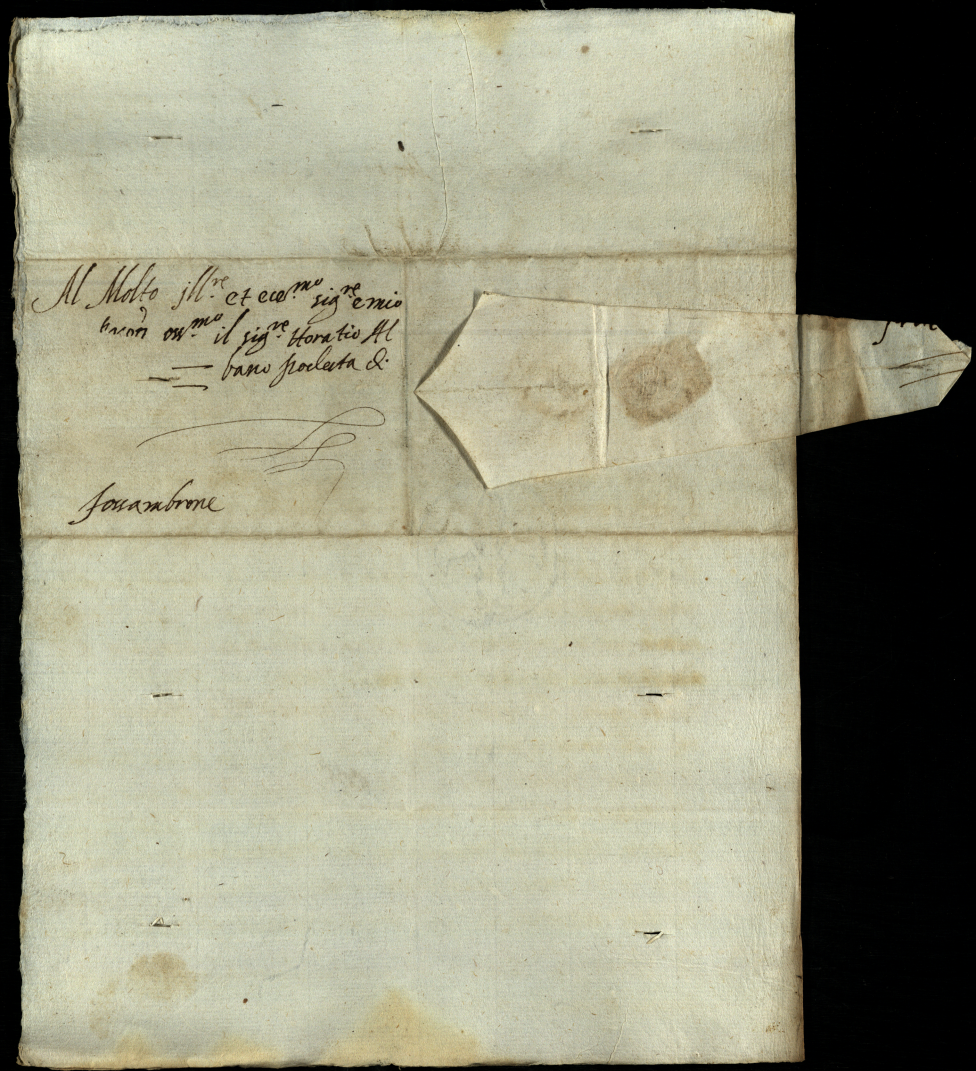 Al Molto Ill.re et ecc.mo sig.re e mio
oss.mo il sig.re Horatio Al
bano podesta &.
fossambrone